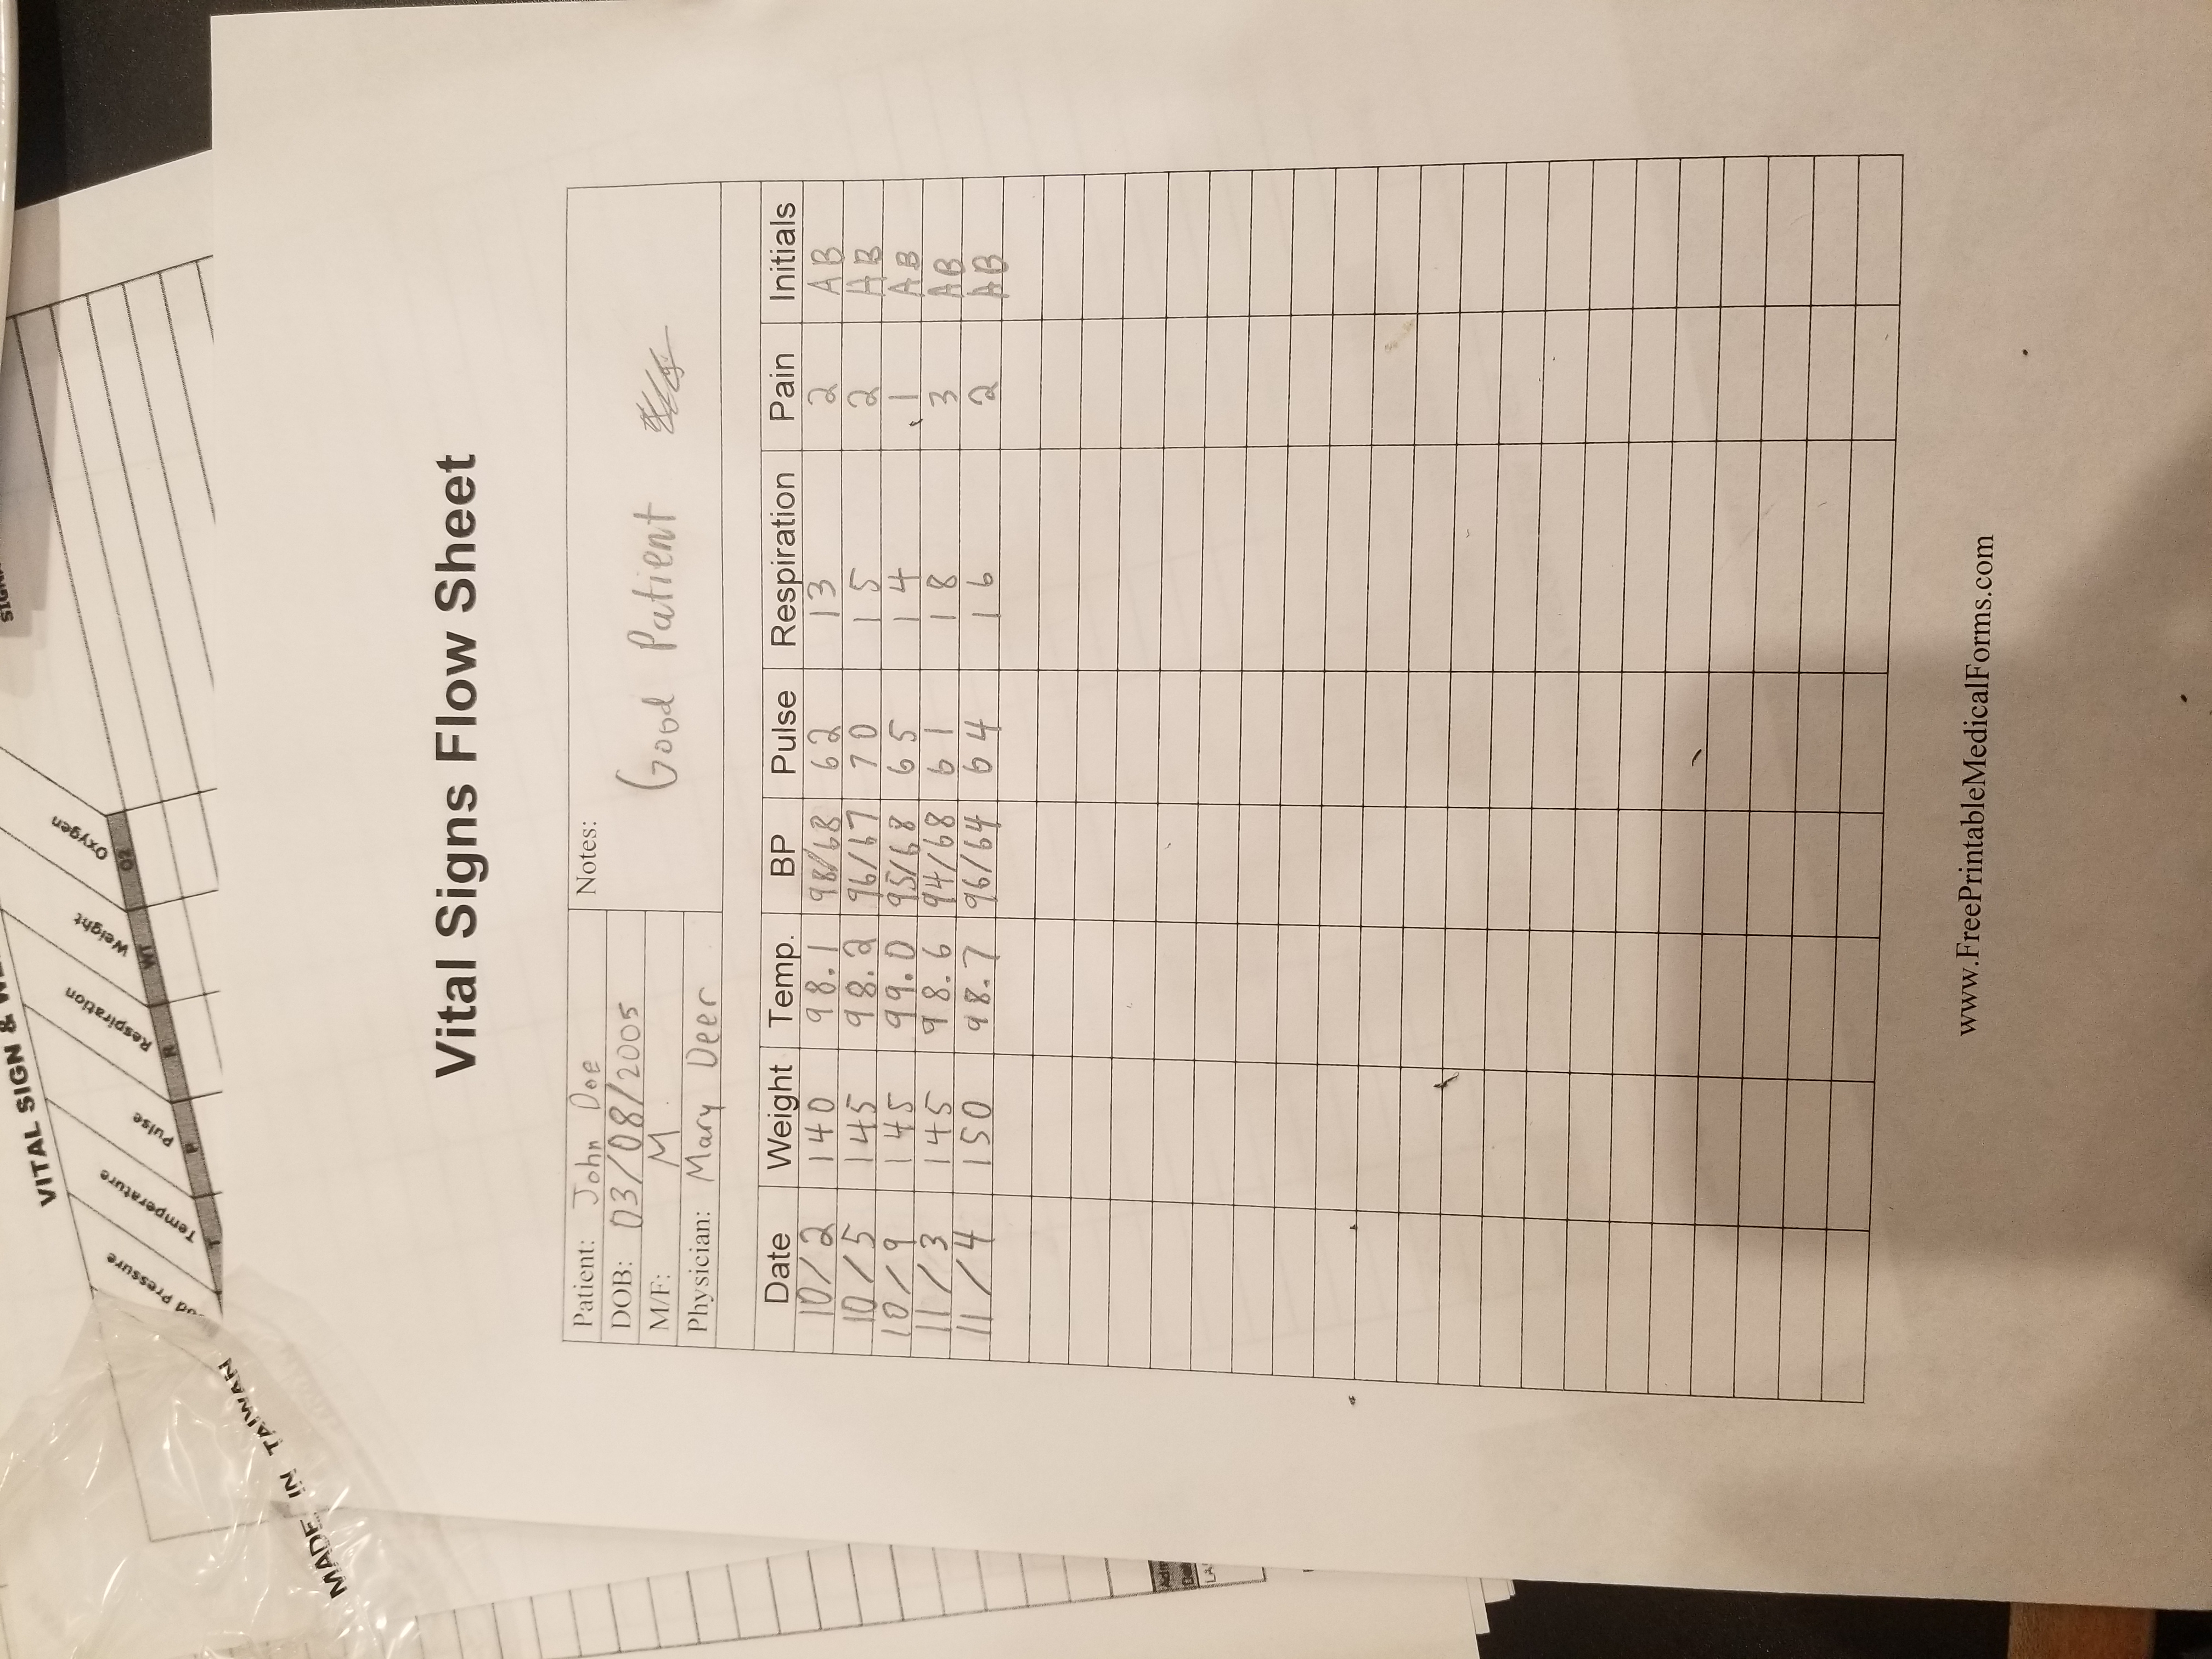 VITAL SIGN &
Pressure Temperature Pulse Respiration Weight Oxygen
T P R WT O2
MADE IN TAIWAN
Vital Signs Flow Sheet
Patient: John Doe
Notes:
DOB: 03/08/2005
Good Patient
M/F: M
Physician: Mary Deer
Date Weight Temp. BP Pulse Respiration Pain Initials
10/2 140 98.1 98/68 62 13 2 AB
10/5 145 98.2 96/67 70 15 2 AB
10/9 145 99.0 95/68 65 14 1 AB
11/3 145 98.6 94/68 61 18 3 AB
11/4 150 98.7 96/64 64 16 2 AB
www.FreePrintableMedicalForms.com